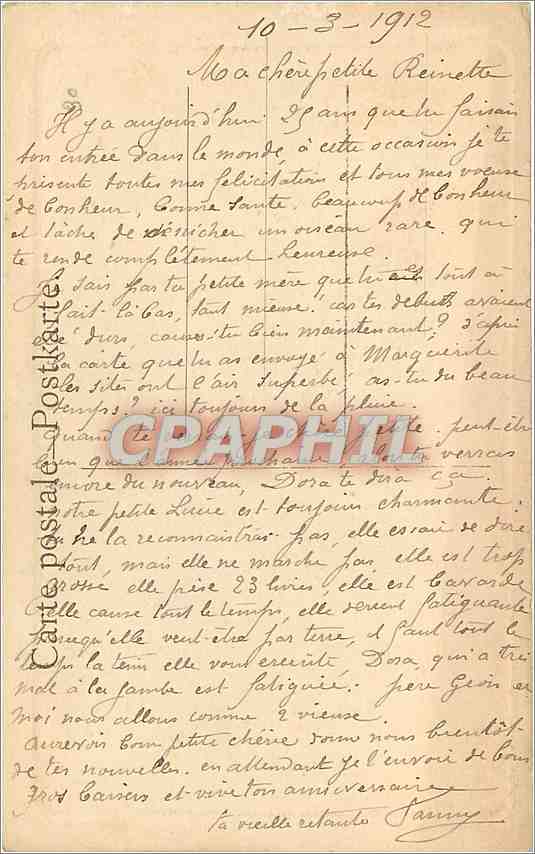 10 - 3 - 1912
Ma chère petite Reinette
Il y a aujourd'hui 25 ans que tu faisais
ton entrée dans le monde, à cette occasion je te
présente toutes mes félicitations et tous mes voeuse
de bonheur, bonne sante. beaucoup de bonheur
et tâche de dénicher un oiseau rare qui
te rende complètement heureuse.
Je sais par ta petite mère que tu es tout à
fait là bas, tant mieuse. car tes debuts avaient
été durs, causes-tu bien maintenant? d'après
la carte que tu as envoyé à Marguerite
les sites ont l'air superbe, as-tu du beau
temps? ici toujours de la pluie.
quand te petite. peut-être
bien que l'année tu verras
encore du nouveau, Dora te dira ça.
notre petite Lucie est toujours charmante.
tu ne la reconnaîtras pas, elle essaie de dire
tout, mais elle ne marche pas, elle est trop
grosse elle pèse 23 livres, elle est bavarde
elle cause tout le temps, elle devient fatiguante
puisqu'elle veut-être par terre, il faut tout le
temps la tenir elle vous ereinte, Dora, qui a très
mal à la jambe est fatiguée. père et
moi nous allons comme 2 vieuse.
Aurevoir bonne petite chérie donne nous bientôt
de tes nouvelles. en attendant je t'envoie de bons
gros baisers et vive ton anniversaire
ta vieille Fanny
Carte postale - Postkarte
CPAPHIL